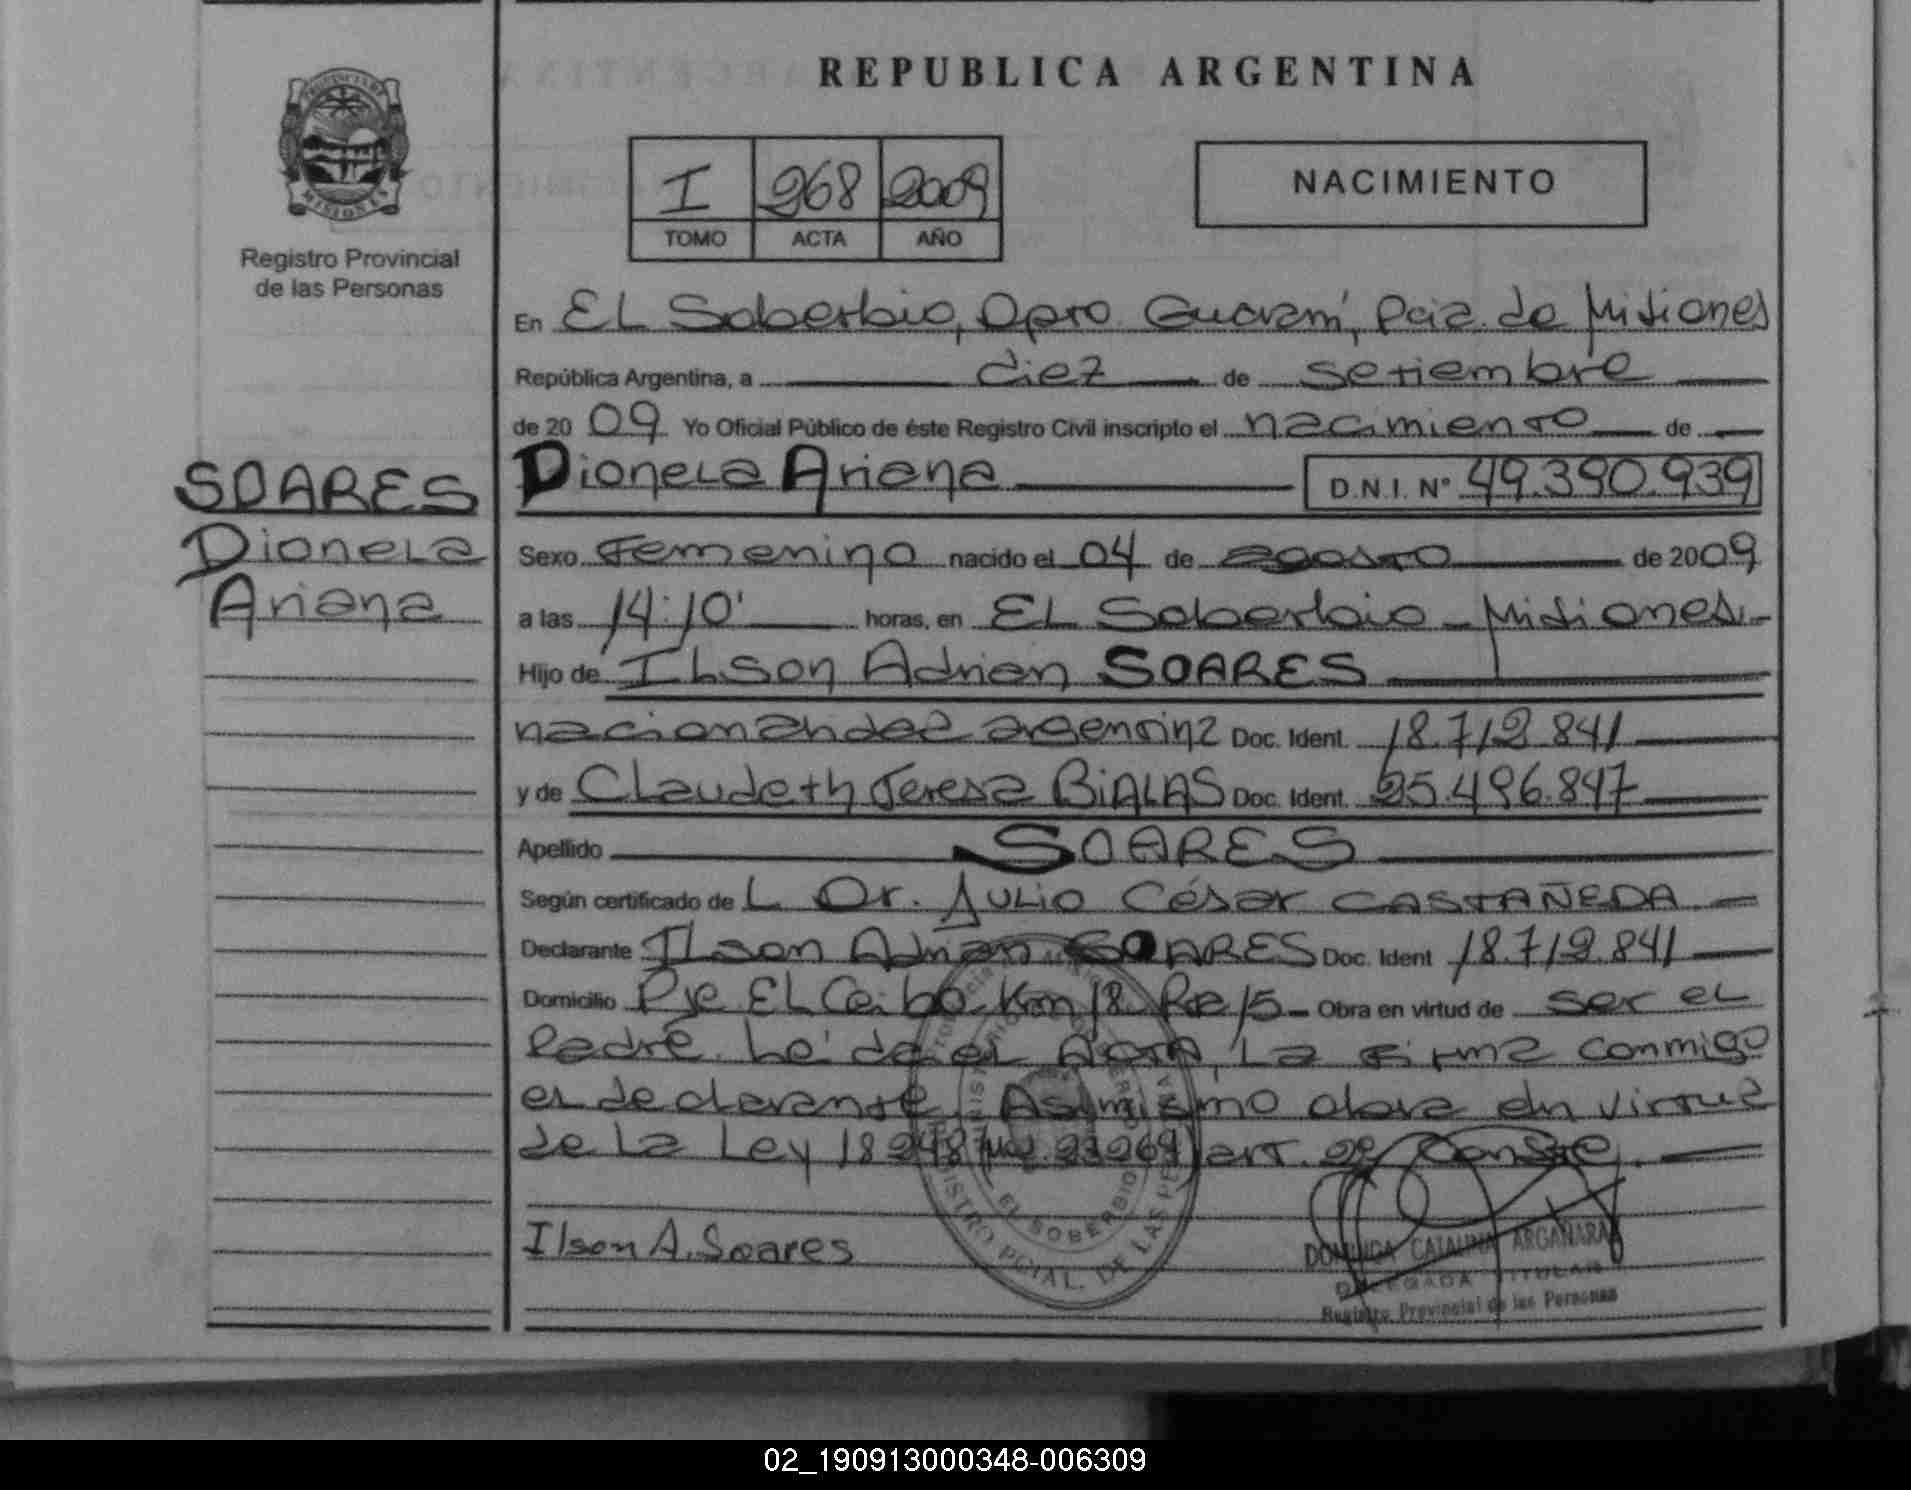 REPUBLICA ARGENTINA
PROVINCIA DE MISIONES
Registro Provincial
de las Personas
I 268 2009
TOMO ACTA AÑO
NACIMIENTO
En EL Soberbio, Dpto Guaraní, Pcia. de Misiones
República Argentina, a diez de setiembre
de 2009 Yo Oficial Público de éste Registro Civil inscripto el nacimiento de
Dionela Ariana D.N.I. Nº 49.390.939
SOARES
Dionela
Ariana
Sexo Femenino nacido el 04 de agosto de 2009
a las 14:10' horas, en EL Soberbio - Misiones.-
Hijo de Ilson Adrian SOARES
nacionalidad argentina Doc. Ident. 18.712.841
y de Claudeth Teresa BiALAS Doc. Ident. 25.496.847
Apellido SOARES
Según certificado de L Dr. Julio César CASTAÑEDA
Declarante Ilson Adrian SOARES Doc. Ident 18.712.841
Domicilio Pje EL Ceibo Km 18. Rta 15 - Obra en virtud de ser el
Padre. Leída el Acta, La firma conmigo
el declarante. Asimismo obra en virtud
de La Ley 18248 art. Conste.
Ilson A. Soares
REGISTRO PCIAL. DE LAS PE
EL SOBERBIO
CATALINA ARGAÑARA
DELEGADA TITULAR
Registro Provincial de las Personas
02_190913000348-006309